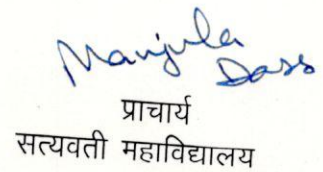 Manjula
Dass
प्राचार्य
सत्यवती महाविद्यालय